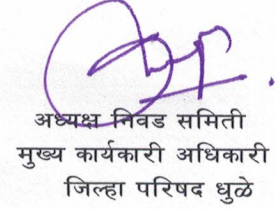 अध्यक्ष निवड समिती
मुख्य कार्यकारी अधिकारी
जिल्हा परिषद धुळे